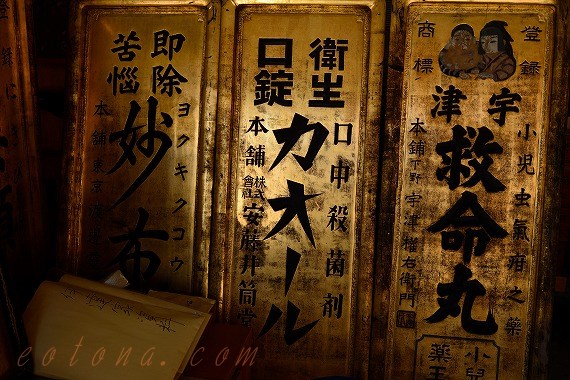 登録
商標
小児虫氣疳之藥
宇津
救命丸
本舗下野宇津権右衛門
小児
薬王
衛生
口錠
口中殺菌剤
カオール
本舗株式會社安藤井筒堂
即除
苦悩
ヨクキクコウ
妙布
本舗東京
eotona.com